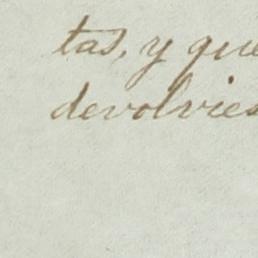 tas, y que
devolvies